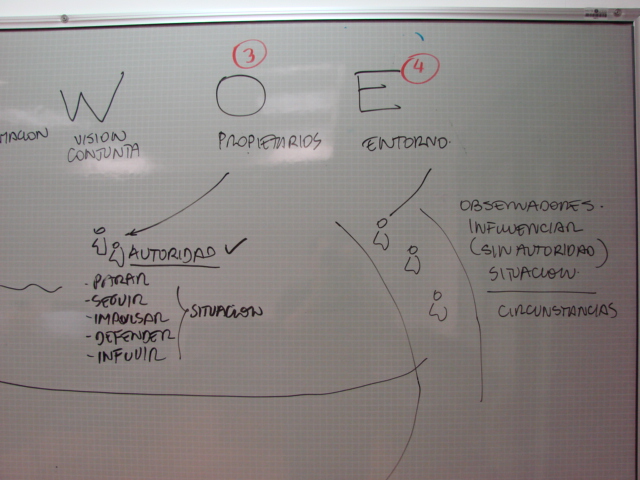 3
4
W O E
MACION
VISION
CONJUNTA
PROPIETARIOS
ENTORNO
AUTORIDAD ✓
- PARAR
- SEGUIR
- IMPULSAR
- DEFENDER
- INFLUIR
SITUACION
OBSERVADORES.
INFLUENCIAR
(SIN AUTORIDAD)
SITUACION
CIRCUNSTANCIAS